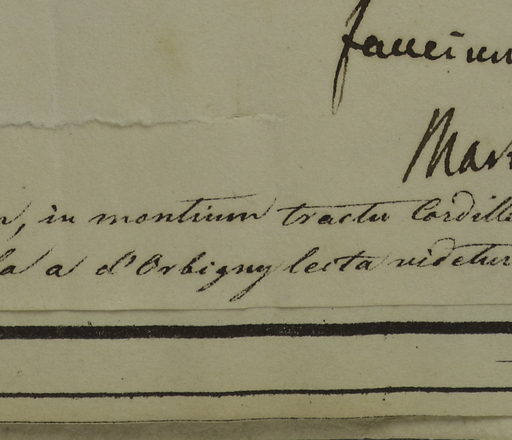 faucium
Mar
, in montium tractu Cordill
la a d'Orbigny lecta videtur